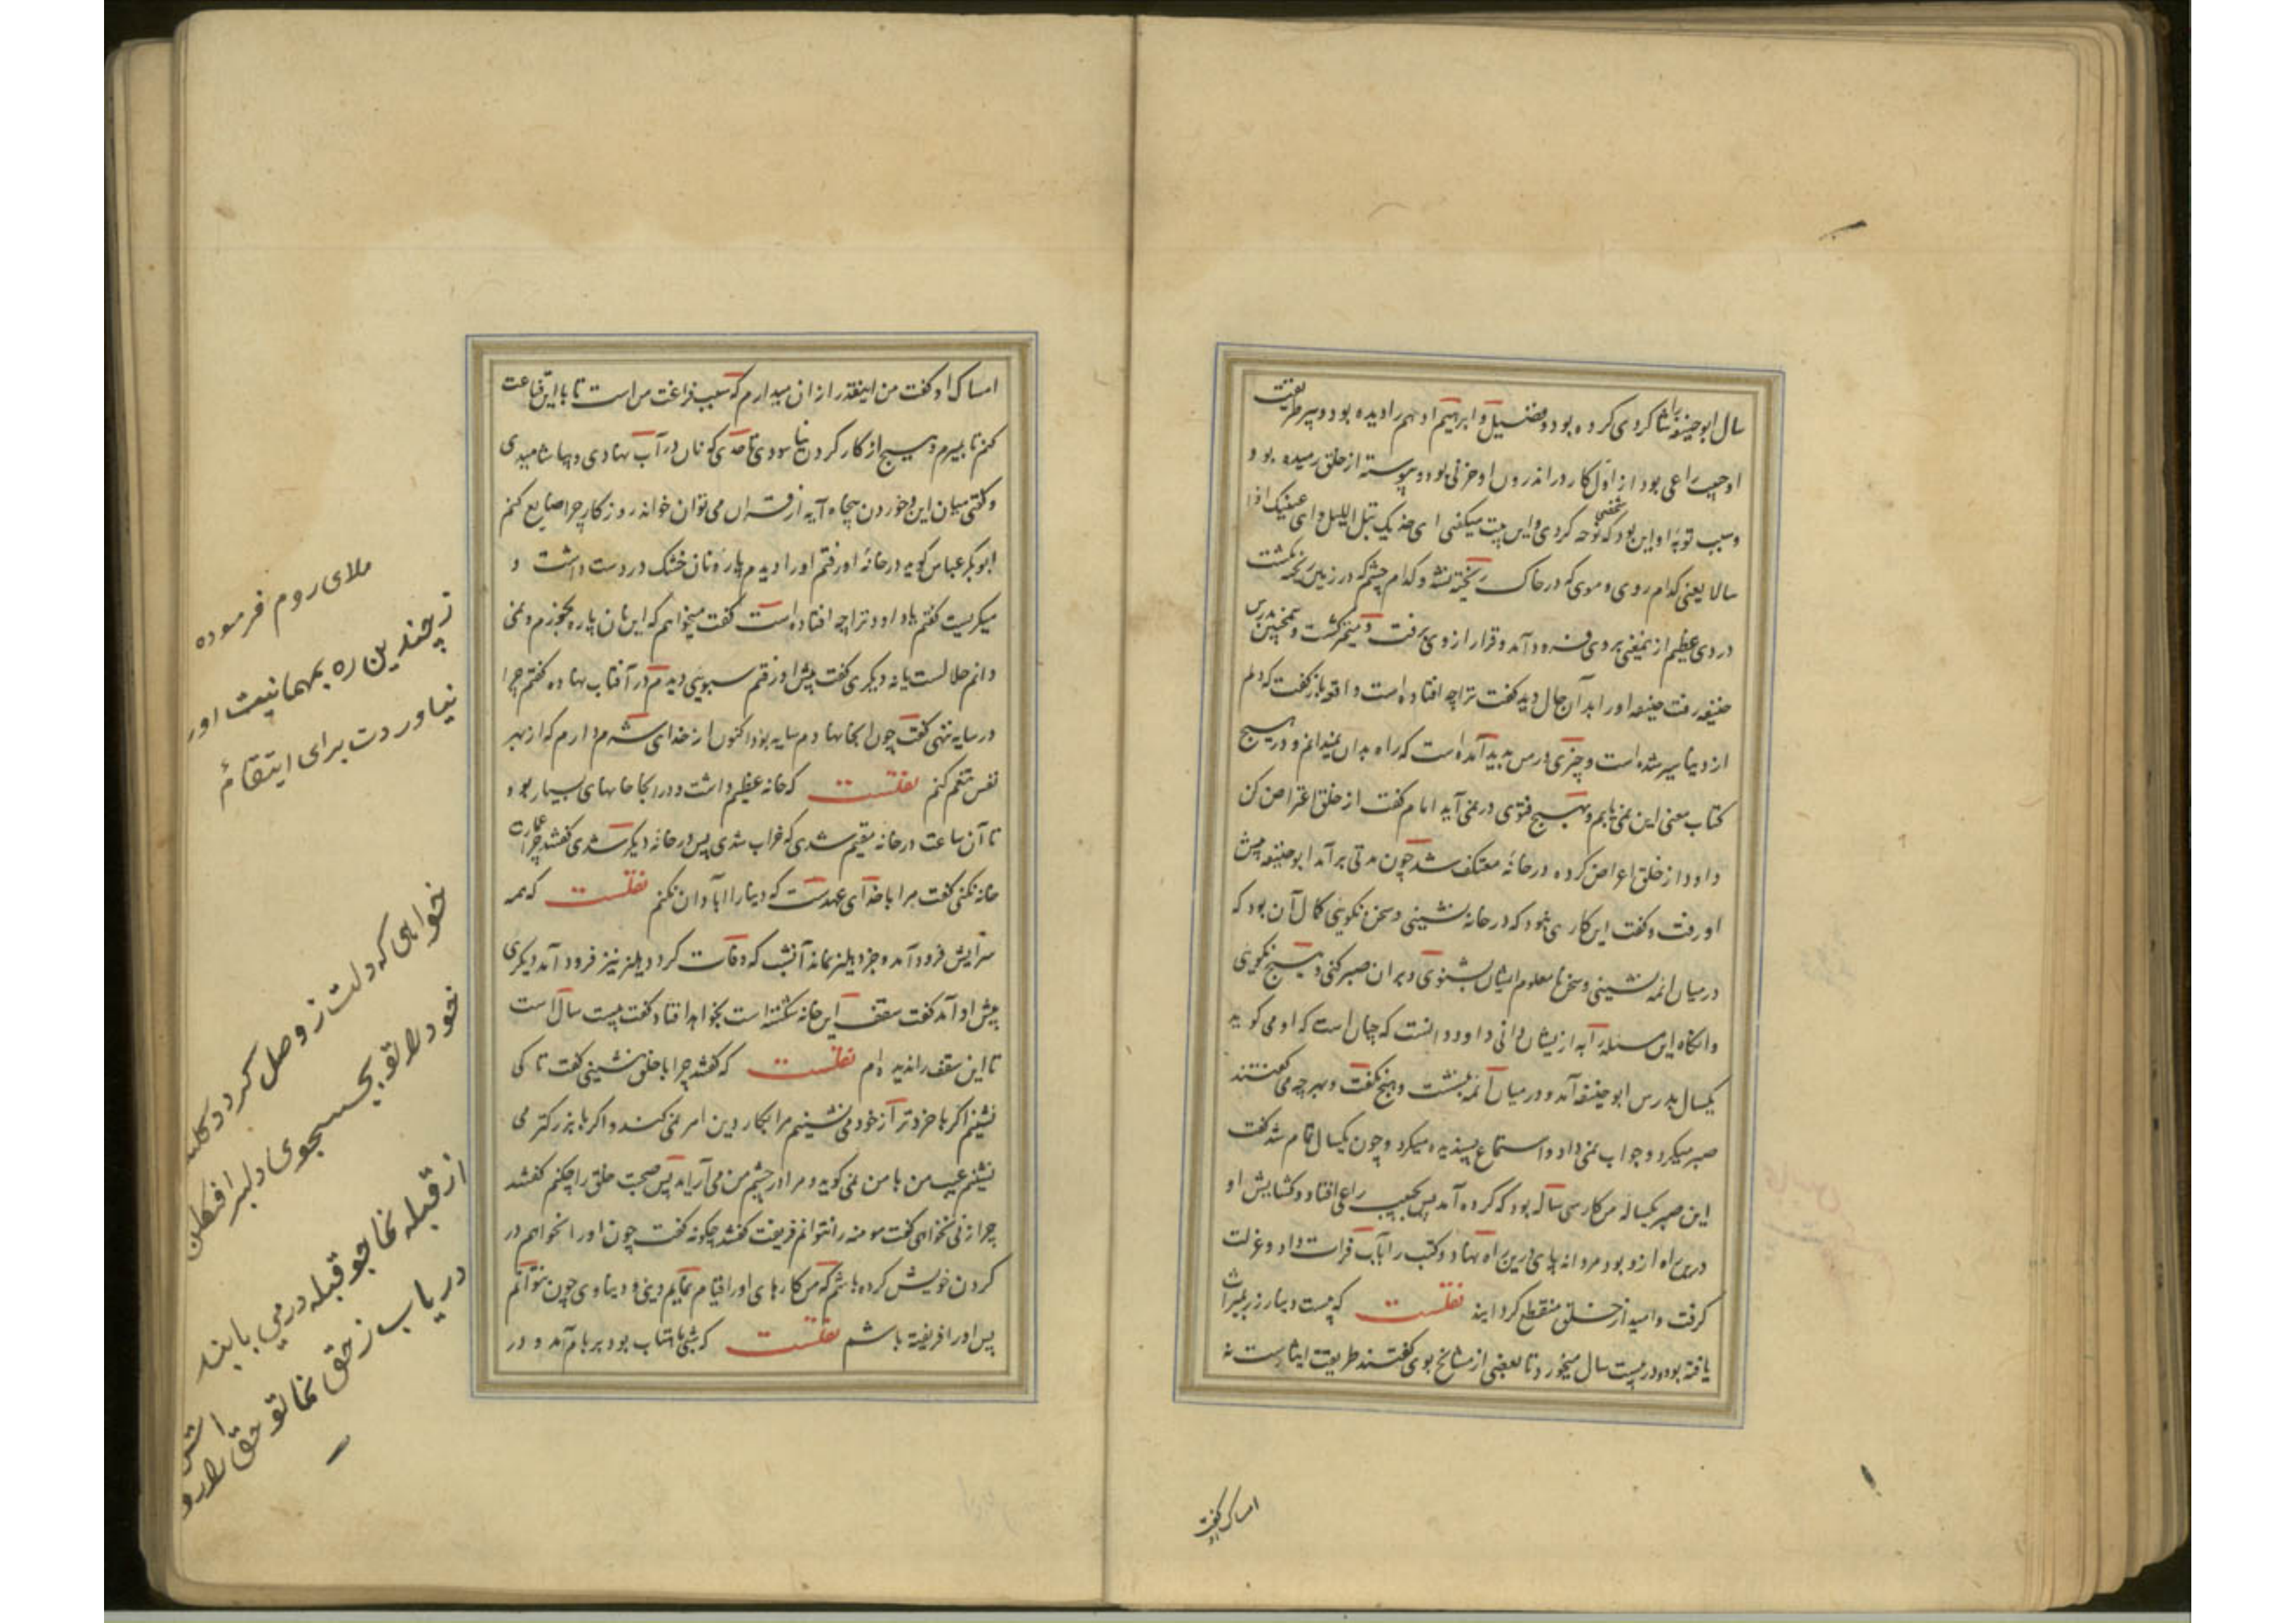 سال ابوحنیفه را شاکردی کرده بود و فضیل و ابرهیم ادهم را دیده بود و پیر طریقت
او حبیب راعی بود از اول کار در اندرون او حزنی بود و پیوسته از خلق رمیده بود و
و سبب توبهٔ او این بود که شخصی نوحه کردی و این بیت میکفتی ای خدیک تبدل البلی و ای عینیک اذا
سالا یعنی کدام روی و موی که در خاک ریخته نشد و کدام چشم که در زمین ریخته نکشت
دردی عظیم ازین معنی بر وی فرود آمد و قرار از وی برفت و متحیر کشت و همچنین بدرس
حنیفه رفت حنیفه او را بد آن حال دید کفت ترا چه افتاده است واقعه باز کفت که دلم
از دنیا سیر شده است و چیزی در من پدید آمده است که راه بدان نمیدانم و در هیچ
کتاب معنی این نمی یابم و بهیچ فتوی در نمی آید امام کفت از خلق اعراض کن
داود از خلق اعراض کرده در خانه معتکف شد چون مدتی برآمد ابوحنیفه پیش
او رفت و کفت این کاری نبود که در خانه نشینی و سخن نکویی کال آن بود که
در میان ائمه نشینی و سخن نا معلوم ایشان بشنوی و بر ان صبر کنی و هیچ نکویی
و انکاه این مسئله را به از یشان دانی داود دانست که چنان است که او می کوید
یکسال بدرس ابوحنیفه آمد و در میان ائمه بنشت و هیچ نکفت و هر چه می کفتند
صبر میکرد و جواب نمی داد و استماع بسنده میکرد و چون یکسال تمام شد کفت
این صبر یکساله من کار سی ساله بود که کرده آمد پس بحبیب راعی افتاد و کشایش او
درین راه ازو بود مردانه پای درین راه نهاد و کتب را بآب فرات داد و عزلت
کرفت و امید از خلق منقطع کردانید نقلست که بیست دینار زر بمیراث
یافته بود و در بیست سال میخورد تا بعضی از مشایخ بوی کفتند طریقت ایثارست نه
امساک او کفت
امساک او کفت من اینقدر از ان میدارم که سبب فراغت من است تا با این قناعت
کنم تا بمیرم و هیچ از کار کردن نیا سودی تا حدی که نان در آب نهادی و بیاشامیدی
و کفتی میان این و خوردن پنجاه آیه از قران می توان خواند روزکار چرا ضایع کنم
ابوبکر عباس کوید در خانهٔ او رفتم او را دیدم پارهٔ نان خشک در دست داشت و
میکریست کفتم یا داود ترا چه افتاده است کفت میخواهم که این نان پاره بخورم و نمی
دانم حلالست یا نه دیکری کفت پیش او رفتم سبویی دیدم در آفتاب نهاده کفتم چرا
در سایه ننهی کفت چون انجا نهادم سایه بود اکنون از خدای شرم دارم که از بهر
نفس تنعم کنم نقلست که خانه عظیم داشت و در انجا خانهای بسیار بود
تا آن ساعت در خانه مقیم شدی که خراب شدی پس در خانه دیکر شدی کفتند چرا عمارت
خانه نکنی کفت مرا با خدای عهدست که دینا را آبادان نکنم نقلست که همه
سرایش فرود آمد و جز دهلیز نماند آنشب که وفات کرد دهلیز نیز فرود آمد دیکری
پیش او آمد کفت سقف این خانه شکسته است بخواهد افتاد کفت بیست سال است
تا این سقف را ندیده ام نقلست که کفتند چرا با خلق ننشینی کفت تا کی
نشینم اکر با خردتر از خود می نشینم مرا بکار دین امر نمی کند و اکر با بزرکتر می
نشینم عیب من با من نمی کوید و مرا در چشم من می آراید پس صحبت خلق را چکنم کفتند
چرا زنی نخواهی کفت مومنه را نتوانم فریفت کفتند چکونه کفت چون او را بخواهم در
کردن خویش کرده باشم که من کارهای او را قیام نمایم دینی و دنیاوی چون نتوانم
پس او را فریفته باشم نقلست که شبی ماهتاب بود بر بام آمد و در
ملای روم فرموده
ز چندین ره بمهمانیت اور
نیاوردت برای انتقام
خواهی که دلت ز وصل کردد
خود را تو بجستجوی دلبر افکن
از قبله نما جو قبله درمی یابند
دریاب ز حق نما تو حق را رو